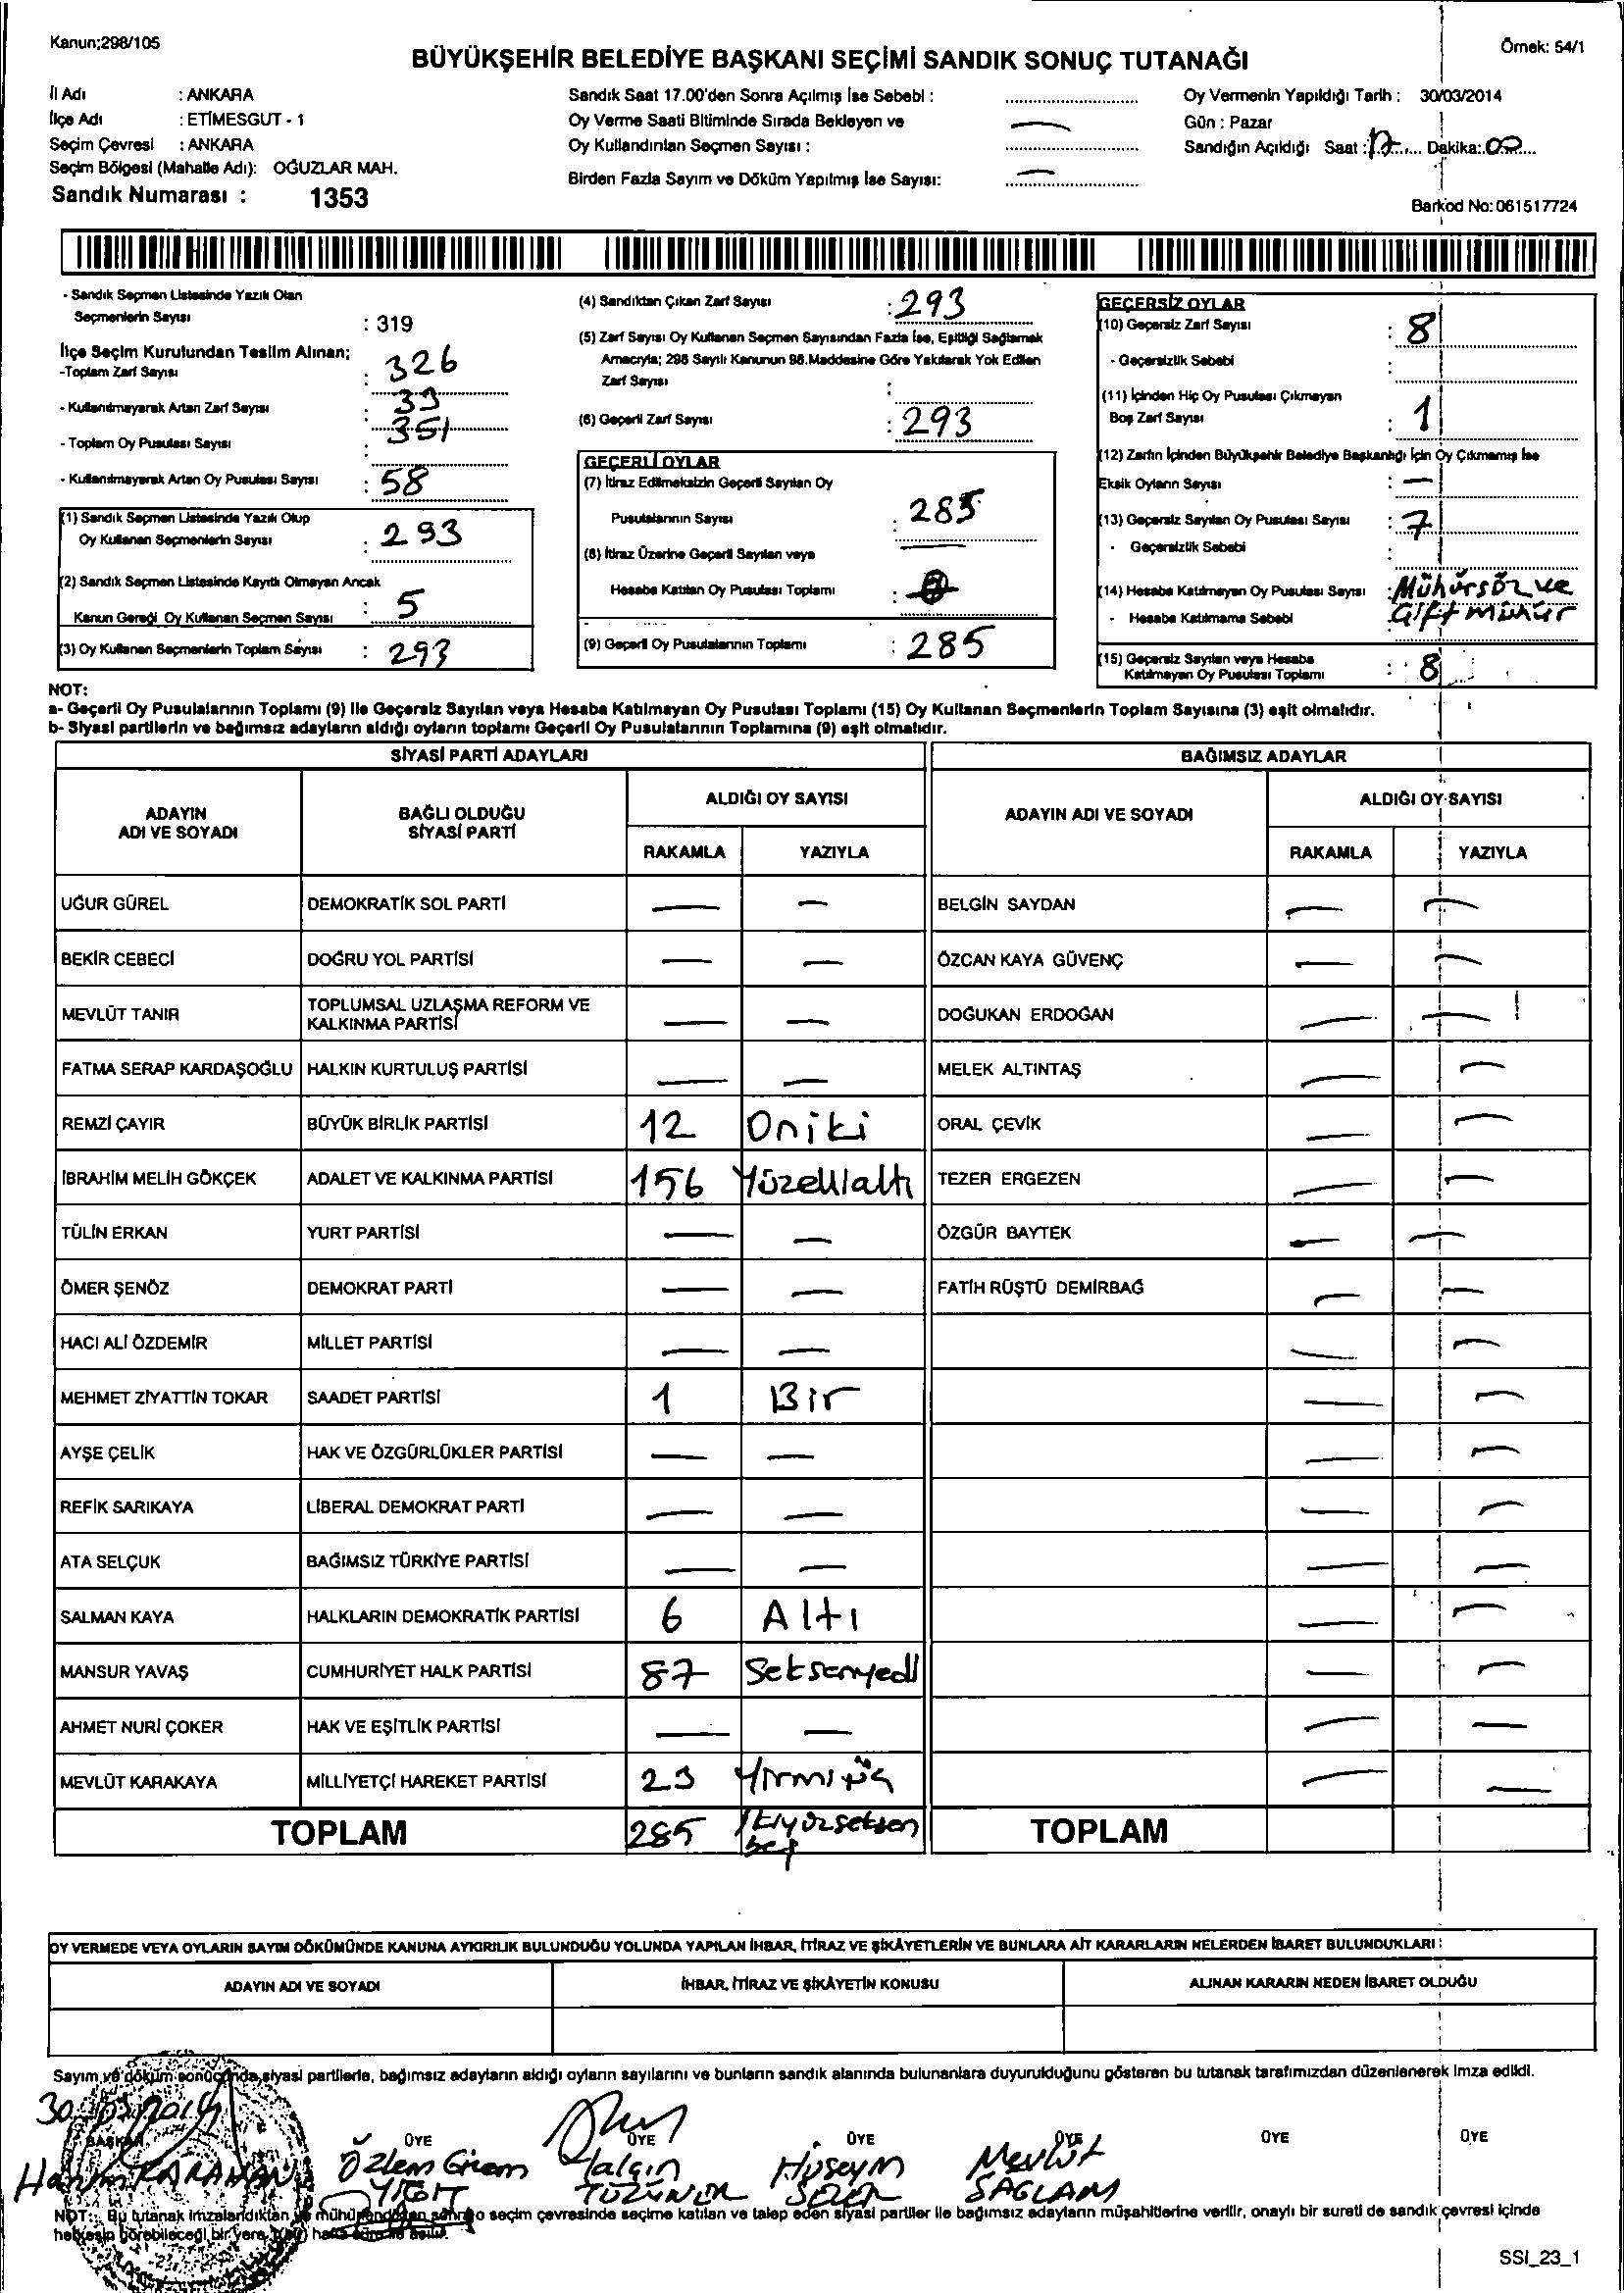 Kanun:298/105
Örnek: 54/1
BÜYÜKŞEHİR BELEDİYE BAŞKANI SEÇİMİ SANDIK SONUÇ TUTANAĞI
İl Adı : ANKARA
İlçe Adı : ETİMESGUT - 1
Seçim Çevresi : ANKARA
Seçim Bölgesi (Mahalle Adı): OĞUZLAR MAH.
Sandık Numarası : 1353
Sandık Saat 17.00'den Sonra Açılmış İse Sebebi :
Oy Verme Saati Bitiminde Sırada Bekleyen ve
Oy Kullandırılan Seçmen Sayısı : —
Birden Fazla Sayım ve Döküm Yapılmış İse Sayısı: —
Oy Vermenin Yapıldığı Tarih : 30/03/2014
Gün : Pazar
Sandığın Açıldığı Saat : 17 Dakika: 00
Barkod No: 061517724
- Sandık Seçmen Listesinde Yazılı Olan
Seçmenlerin Sayısı : 319
İlçe Seçim Kurulundan Teslim Alınan;
-Toplam Zarf Sayısı : 326
- Kullanılmayarak Artan Zarf Sayısı : 33
- Toplam Oy Pusulası Sayısı : 351
- Kullanılmayarak Artan Oy Pusulası Sayısı : 58
(1) Sandık Seçmen Listesinde Yazılı Olup
Oy Kullanan Seçmenlerin Sayısı : 293
(2) Sandık Seçmen Listesinde Kayıtlı Olmayan Ancak
Kanun Gereği Oy Kullanan Seçmen Sayısı : 5
(3) Oy Kullanan Seçmenlerin Toplam Sayısı : 293
(4) Sandıktan Çıkan Zarf Sayısı : 293
(5) Zarf Sayısı Oy Kullanan Seçmen Sayısından Fazla İse, Eşitliği Sağlamak
Amacıyla; 298 Sayılı Kanunun 98.Maddesine Göre Yakılarak Yok Edilen
Zarf Sayısı :
(6) Geçerli Zarf Sayısı : 293
GEÇERLİ OYLAR
(7) İtiraz Edilmeksizin Geçerli Sayılan Oy
Pusulalarının Sayısı : 285
(8) İtiraz Üzerine Geçerli Sayılan veya
Hesaba Katılan Oy Pusulası Toplamı :
(9) Geçerli Oy Pusulalarının Toplamı : 285
GEÇERSİZ OYLAR
(10) Geçersiz Zarf Sayısı : 8
- Geçersizlik Sebebi :
(11) İçinden Hiç Oy Pusulası Çıkmayan
Boş Zarf Sayısı : 1
(12) Zarfın İçinden Büyükşehir Belediye Başkanlığı İçin Oy Çıkmamış İse
Eksik Oyların Sayısı : —
(13) Geçersiz Sayılan Oy Pusulası Sayısı : 7
- Geçersizlik Sebebi :
(14) Hesaba Katılmayan Oy Pusulası Sayısı : Mühürsüz ve
- Hesaba Katılmama Sebebi : Çift mühür
(15) Geçersiz Sayılan veya Hesaba
Katılmayan Oy Pusulası Toplamı : 8
NOT:
a- Geçerli Oy Pusulalarının Toplamı (9) ile Geçersiz Sayılan veya Hesaba Katılmayan Oy Pusulası Toplamı (15) Oy Kullanan Seçmenlerin Toplam Sayısına (3) eşit olmalıdır.
b- Siyasi partilerin ve bağımsız adayların aldığı oyların toplamı Geçerli Oy Pusulalarının Toplamına (9) eşit olmalıdır.
SİYASİ PARTİ ADAYLARI
BAĞIMSIZ ADAYLAR
ADAYIN
ADI VE SOYADI
BAĞLI OLDUĞU
SİYASİ PARTİ
ALDIĞI OY SAYISI
RAKAMLA YAZIYLA
ADAYIN ADI VE SOYADI
ALDIĞI OY SAYISI
RAKAMLA YAZIYLA
UĞUR GÜREL DEMOKRATİK SOL PARTİ — — BELGİN SAYDAN — —
BEKİR CEBECİ DOĞRU YOL PARTİSİ — — ÖZCAN KAYA GÜVENÇ — —
MEVLÜT TANIR TOPLUMSAL UZLAŞMA REFORM VE
KALKINMA PARTİSİ — — DOĞUKAN ERDOĞAN — —
FATMA SERAP KARDAŞOĞLU HALKIN KURTULUŞ PARTİSİ — — MELEK ALTINTAŞ — —
REMZİ ÇAYIR BÜYÜK BİRLİK PARTİSİ 12 Oniki ORAL ÇEVİK — —
İBRAHİM MELİH GÖKÇEK ADALET VE KALKINMA PARTİSİ 156 Yüzellialtı TEZER ERGEZEN — —
TÜLİN ERKAN YURT PARTİSİ — — ÖZGÜR BAYTEK — —
ÖMER ŞENÖZ DEMOKRAT PARTİ — — FATİH RÜŞTÜ DEMİRBAĞ — —
HACI ALİ ÖZDEMİR MİLLET PARTİSİ — — — —
MEHMET ZİYATTİN TOKAR SAADET PARTİSİ 1 Bir — —
AYŞE ÇELİK HAK VE ÖZGÜRLÜKLER PARTİSİ — — — —
REFİK SARIKAYA LİBERAL DEMOKRAT PARTİ — — — —
ATA SELÇUK BAĞIMSIZ TÜRKİYE PARTİSİ — — — —
SALMAN KAYA HALKLARIN DEMOKRATİK PARTİSİ 6 Altı — —
MANSUR YAVAŞ CUMHURİYET HALK PARTİSİ 87 Seksenyedi — —
AHMET NURİ ÇOKER HAK VE EŞİTLİK PARTİSİ — — — —
MEVLÜT KARAKAYA MİLLİYETÇİ HAREKET PARTİSİ 23 Yirmiüç — —
TOPLAM 285 İkiyüzseksen
beş
TOPLAM
OY VERMEDE VEYA OYLARIN SAYIM DÖKÜMÜNDE KANUNA AYKIRILIK BULUNDUĞU YOLUNDA YAPILAN İHBAR, İTİRAZ VE ŞİKÂYETLERİN VE BUNLARA AİT KARARLARIN NELERDEN İBARET BULUNDUKLARI :
ADAYIN ADI VE SOYADI İHBAR, İTİRAZ VE ŞİKÂYETİN KONUSU ALINAN KARARIN NEDEN İBARET OLDUĞU
Sayım ve döküm sonucunda, siyasi partilerle, bağımsız adayların aldığı oyların sayılarını ve bunların sandık alanında bulunanlara duyurulduğunu gösteren bu tutanak tarafımızdan düzenlenerek imza edildi.
30.03.2014
BAŞKAN ÜYE ÜYE ÜYE ÜYE ÜYE ÜYE
KARAHAN Özlem YİĞİT Yalçın Hüseyin Mevlüt SAĞLAM
NOT: Bu tutanak imzalandıktan ve mühürlendikten sonra o seçim çevresinde seçime katılan ve talep eden siyasi partiler ile bağımsız adayların müşahitlerine verilir, onaylı bir sureti de sandık çevresi içinde
herkesin görebileceği bir yere, hafta süre ile asılır.
SSI_23_1